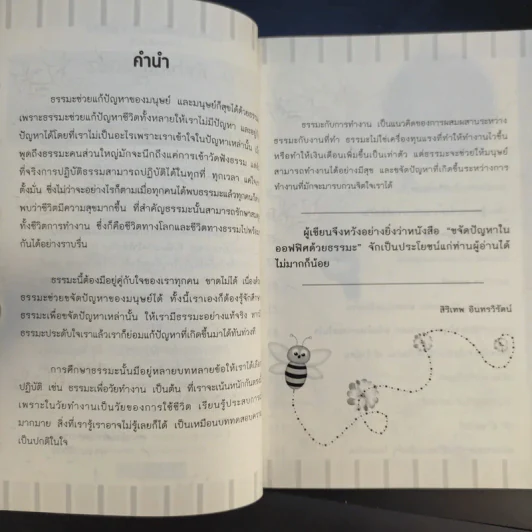 คำนำ
ธรรมะช่วยแก้ปัญหาของมนุษย์ และมนุษย์ก็สุขได้ด้วยธรรมะ
เพราะธรรมะช่วยแก้ปัญหาชีวิตทั้งหลายให้เราไม่มีปัญหา และอยู่กับ
ปัญหาได้โดยที่เราไม่เป็นอะไรเพราะเราเข้าใจในปัญหาเหล่านั้น
พูดถึงธรรมะคนส่วนใหญ่มักจะนึกถึงแต่การเข้าวัดฟังธรรม แต่
ที่จริงการปฏิบัติธรรมสามารถปฏิบัติได้ในทุกที่ ทุกเวลา
ตั้งมั่น ซึ่งไม่ว่าจะอย่างไรก็ตามเมื่อทุกคนได้พบธรรมะแล้วทุกคน
พบว่าชีวิตมีความสุขมากขึ้น ที่สำคัญธรรมะนั้นสามารถรักษา
ทั้งชีวิตการทำงาน ซึ่งก็คือชีวิตทางโลกและชีวิตทางธรรมไปพร้อม
กันได้อย่างราบรื่น
ธรรมะนี้ต้องมีอยู่คู่กับใจของเราทุกคน ขาดไม่ได้
ธรรมะช่วยขจัดปัญหาของมนุษย์ได้ ทั้งนี้เราเองก็ต้องรู้จัก
ธรรมะเพื่อขจัดปัญหาเหล่านั้น ให้เรามีธรรมะอย่างแท้จริง
ธรรมะประดับใจเราแล้วเราก็ย่อมแก้ปัญหาที่เกิดขึ้นมาได้ทันท่วงที
การศึกษาธรรมะนั้นมีอยู่หลายบทหลายข้อให้เราได้
ปฏิบัติ เช่น ธรรมะเพื่อวัยทำงาน เป็นต้น ที่เราจะเน้นหนักกัน
เพราะในวัยทำงานเป็นวัยของการใช้ชีวิต เรียนรู้ประสบการณ์
มากมาย สิ่งที่เรารู้เราอาจไม่รู้เลยก็ได้ เป็นเหมือนบททดสอบ
เป็นปกติในใจ
ธรรมะกับการทำงาน เป็นแนวคิดของการผสมผสานระหว่าง
ธรรมะกับงานที่ทำ ธรรมะไม่ใช่เครื่องทุ่นแรงที่ทำให้ทำงานไวขึ้น
หรือทำให้เงินเดือนเพิ่มขึ้นเป็นเท่าตัว แต่ธรรมะจะช่วยให้มนุษย์
สามารถทำงานได้อย่างมีสุข และขจัดปัญหาที่เกิดขึ้นระหว่างการ
ทำงานที่มักจะมารบกวนจิตใจเราได้
ผู้เขียนจึงหวังอย่างยิ่งว่าหนังสือ “ขจัดปัญหาใน
ออฟฟิศด้วยธรรมะ” จักเป็นประโยชน์แก่ท่านผู้อ่านได้
ไม่มากก็น้อย
สิริเทพ อินทรวิรัตน์